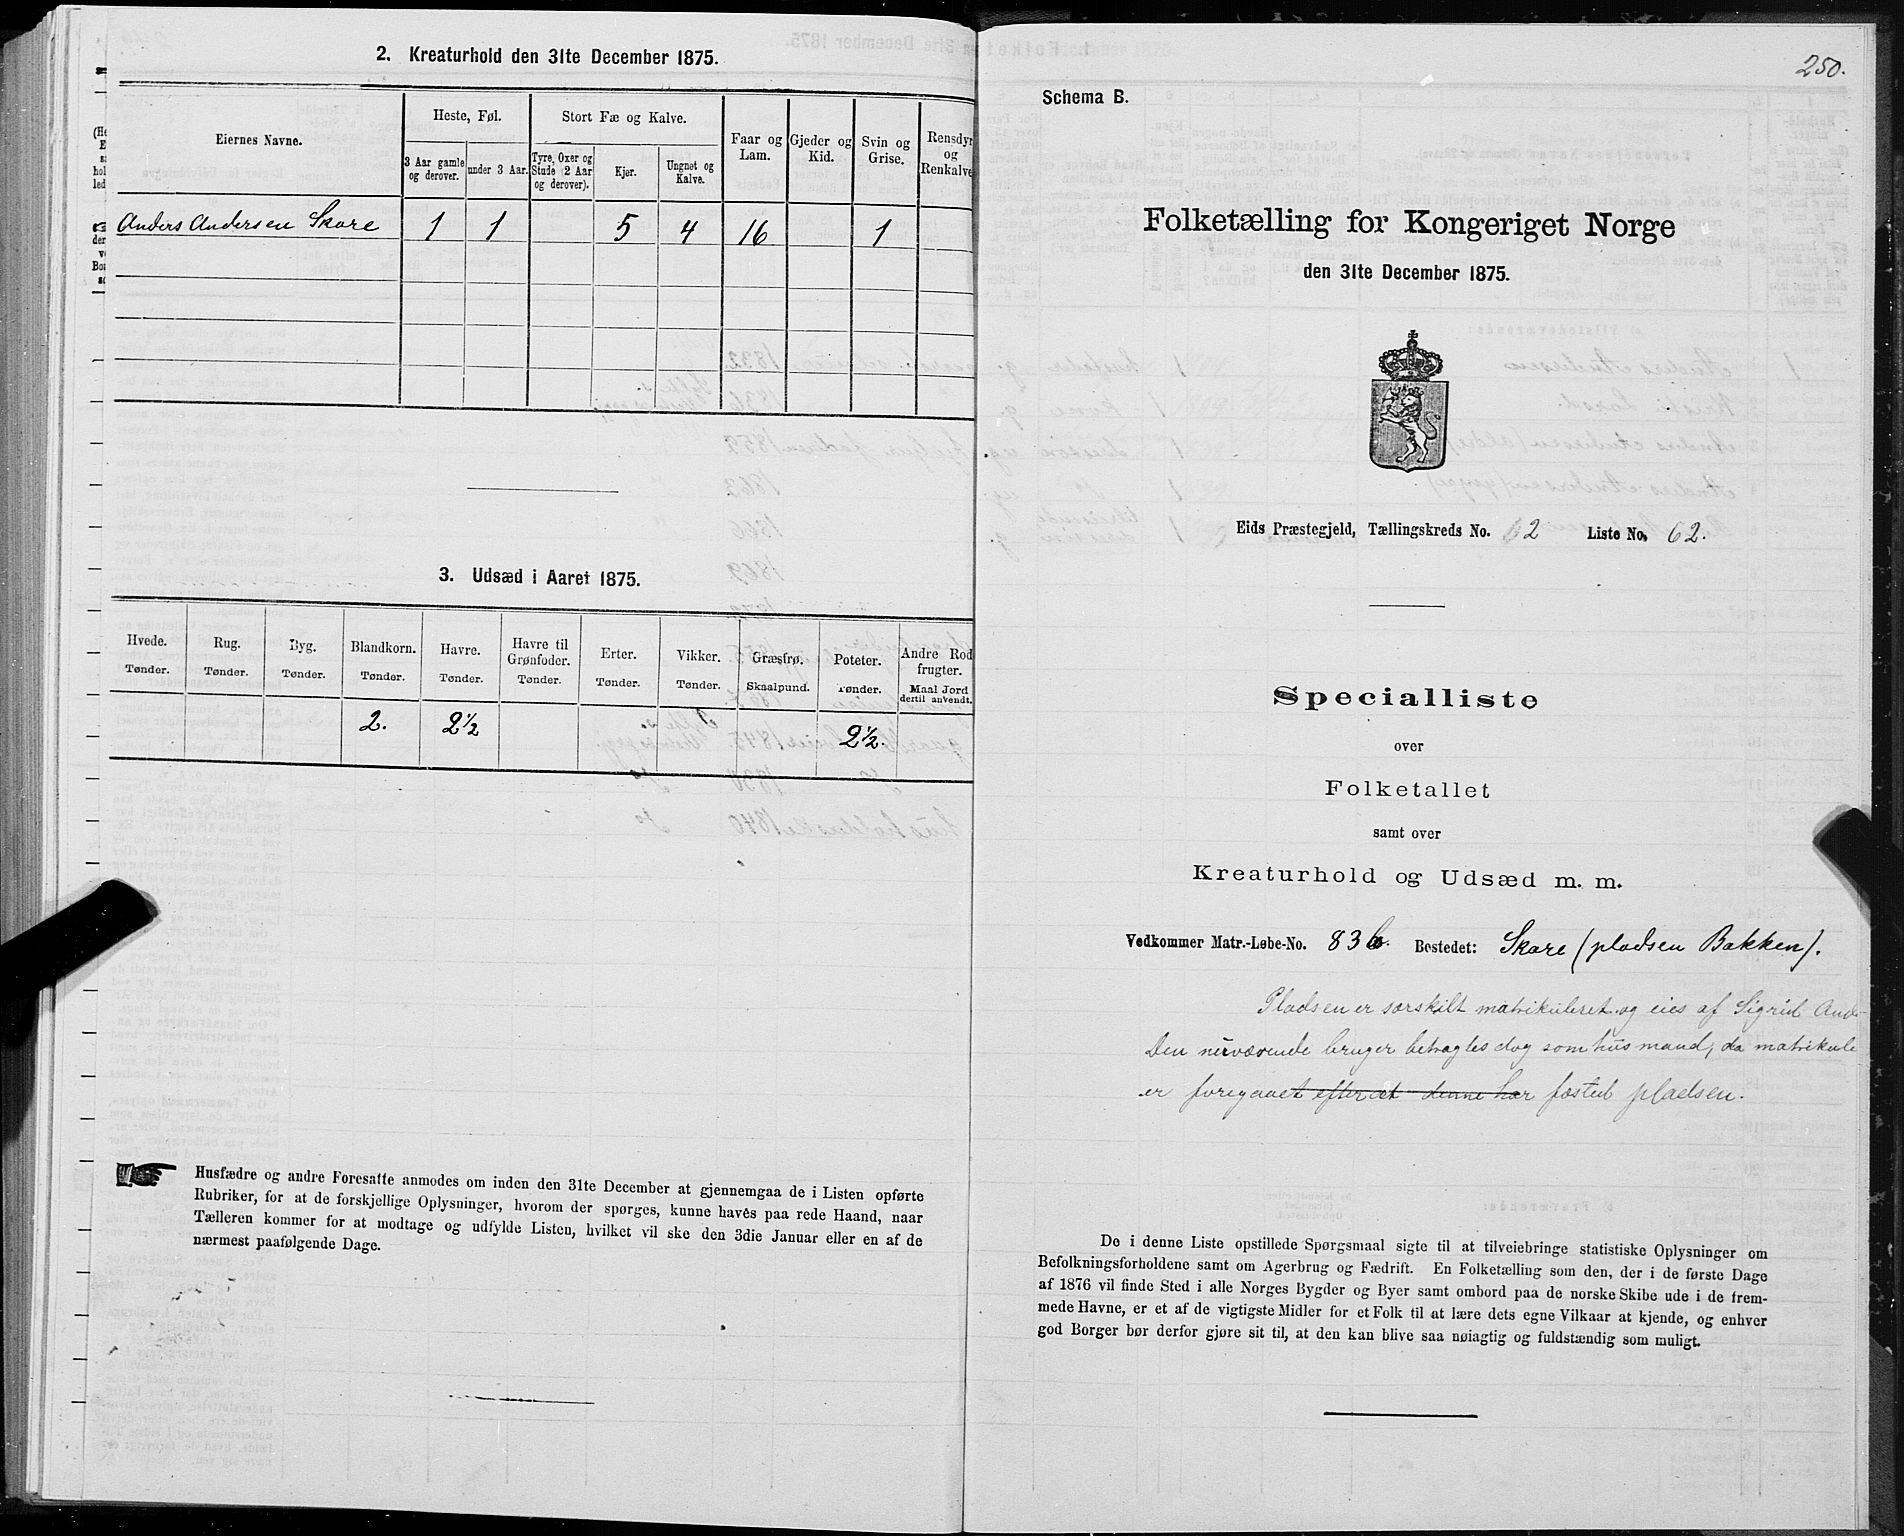 2. Kreaturhold den 31te December 1875.
Eiernes Navne.
Heste, Føl.
Stort Fæ og Kalve.
Faar og Lam.
Gjeder og Kid.
Svin og Grise.
Rensdyr og Renkalve
3 Aar gamle og derover.
under 3 Aar.
Tyre, Oxer og Stude (2 Aar og derover).
Kjør.
Ungnøt og Kalve.
Anders Andersen Skare 1 1 5 4 16 1
3. Udsæd i Aaret 1875.
Hvede. Rug. Byg. Blandkorn. Havre. Havre til Grønfoder. Erter. Vikker. Græsfrø. Poteter. Andre Rod frugter.
Tønder. Tønder. Tønder. Tønder. Tønder. Tønder. Tønder. Tønder. Skaalpund. Tønder. Maal Jord dertil anvendt.
2. 2½ 2½.
Husfædre og andre Foresatte anmodes om inden den 31te December at gjennemgaa de i Listen opførte
Rubriker, for at de forskjellige Oplysninger, hvorom der spørges, kunne havés paa rede Haand, naar
Tælleren kommer for at modtage og udfylde Listen, hvilket vil ske den 3die Januar eller en af de
nærmest paafølgende Dage.
250.
Schema B.
Folketælling for Kongeriget Norge
den 31te December 1875.
Eids Præstegjeld, Tællingskreds No. 2 Liste No. 62.
Specialliste
over
Folketallet
samt over
Kreaturhold og Udsæd m. m.
Vedkommer Matr.-Løbe-No. 83 b. Bostedet: Skare (pladsen Bakken).
Pladsen er særskilt matrikuleret og eies af Sigrid And-
Den nuværende bruger betragtes dog som husmand, da matrikule
er foregaaet efterat denne har fæsted pladsen.
De i denne Liste opstillede Spørgsmaal sigte til at tilveiebringe statistiske Oplysninger om
Befolkningsforholdene samt om Agerbrug og Fædrift. En Folketælling som den, der i de første Dage
af 1876 vil finde Sted i alle Norges Bygder og Byer samt ombord paa de norske Skibe ude i de frem-
mede Havne, er et af de vigtigste Midler for et Folk til at lære dets egne Vilkaar at kjende, og enhver
god Borger bør derfor gjøre sit til, at den kan blive saa nøiagtig og fuldstændig som muligt.